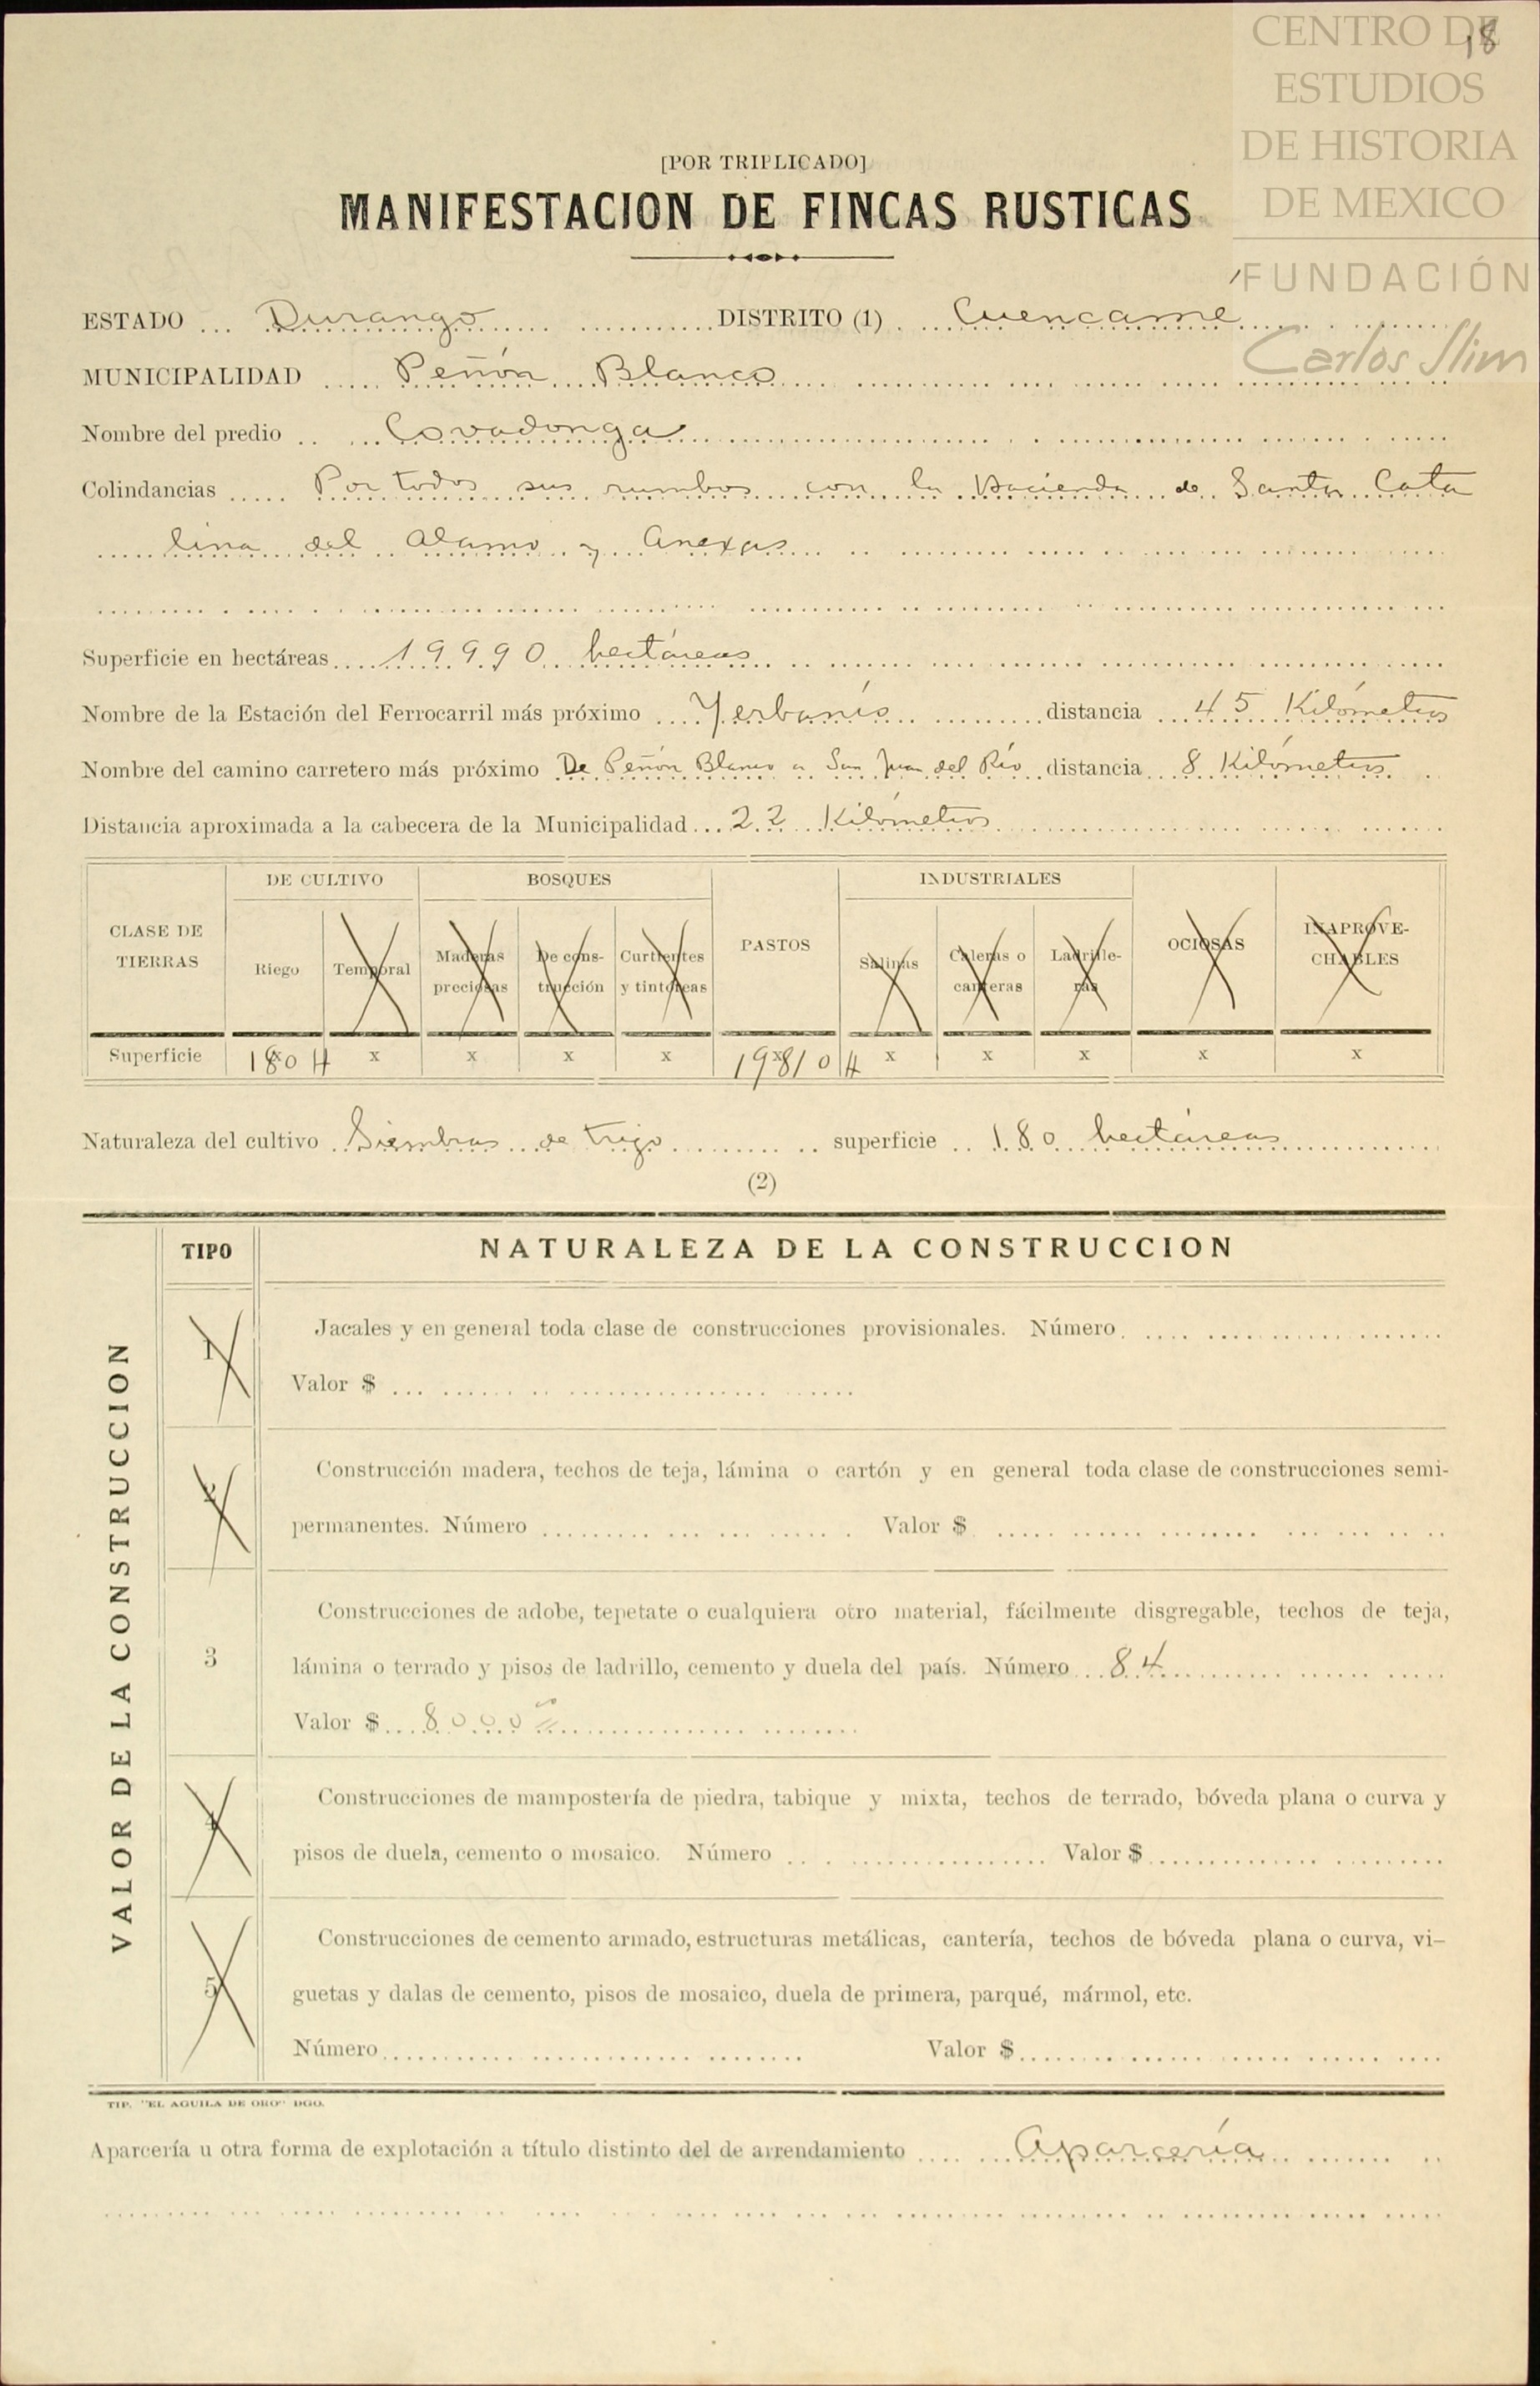 CENTRO DE
ESTUDIOS
DE HISTORIA
DE MEXICO
FUNDACIÓN
Carlos Slim
18
[POR TRIPLICADO]
MANIFESTACION DE FINCAS RUSTICAS
ESTADO Durango DISTRITO (1) Cuencamé
MUNICIPALIDAD Peñón Blanco
Nombre del predio Covadonga
Colindancias Por todos sus rumbos con la Hacienda de Santa Cata
lina del Alamo y Anexas
Superficie en hectáreas 19990 hectáreas
Nombre de la Estación del Ferrocarril más próximo Yerbanís distancia 45 Kilómetros
Nombre del camino carretero más próximo De Peñón Blanco a San Juan del Río distancia 8 Kilómetros
Distancia aproximada a la cabecera de la Municipalidad 22 Kilómetros
DE CULTIVO BOSQUES INDUSTRIALES
CLASE DE TIERRAS Riego Temporal Maderas preciosas De cons-trucción Curtientes y tintóreas PASTOS Salinas Caleras o canteras Ladrille-ras OCIOSAS INAPROVE-CHABLES
Superficie x 180 H x x x x x 19810 H x x x x x
Naturaleza del cultivo Siembras de trigo superficie 180 hectáreas
(2)
TIPO NATURALEZA DE LA CONSTRUCCION
VALOR DE LA CONSTRUCCION
1 Jacales y en general toda clase de construcciones provisionales. Número
Valor $
2 Construcción madera, techos de teja, lámina o cartón y en general toda clase de construcciones semi-
permanentes. Número Valor $
Construcciones de adobe, tepetate o cualquiera otro material, fácilmente disgregable, techos de teja,
3 lámina o terrado y pisos de ladrillo, cemento y duela del país. Número 84
Valor $ 8000 00
4 Construcciones de mampostería de piedra, tabique y mixta, techos de terrado, bóveda plana o curva y
pisos de duela, cemento o mosaico. Número Valor $
Construcciones de cemento armado, estructuras metálicas, cantería, techos de bóveda plana o curva, vi-
5 guetas y dalas de cemento, pisos de mosaico, duela de primera, parqué, mármol, etc.
Número Valor $
TIP. "EL AGUILA DE ORO" DGO.
Aparcería u otra forma de explotación a título distinto del de arrendamiento Aparcería